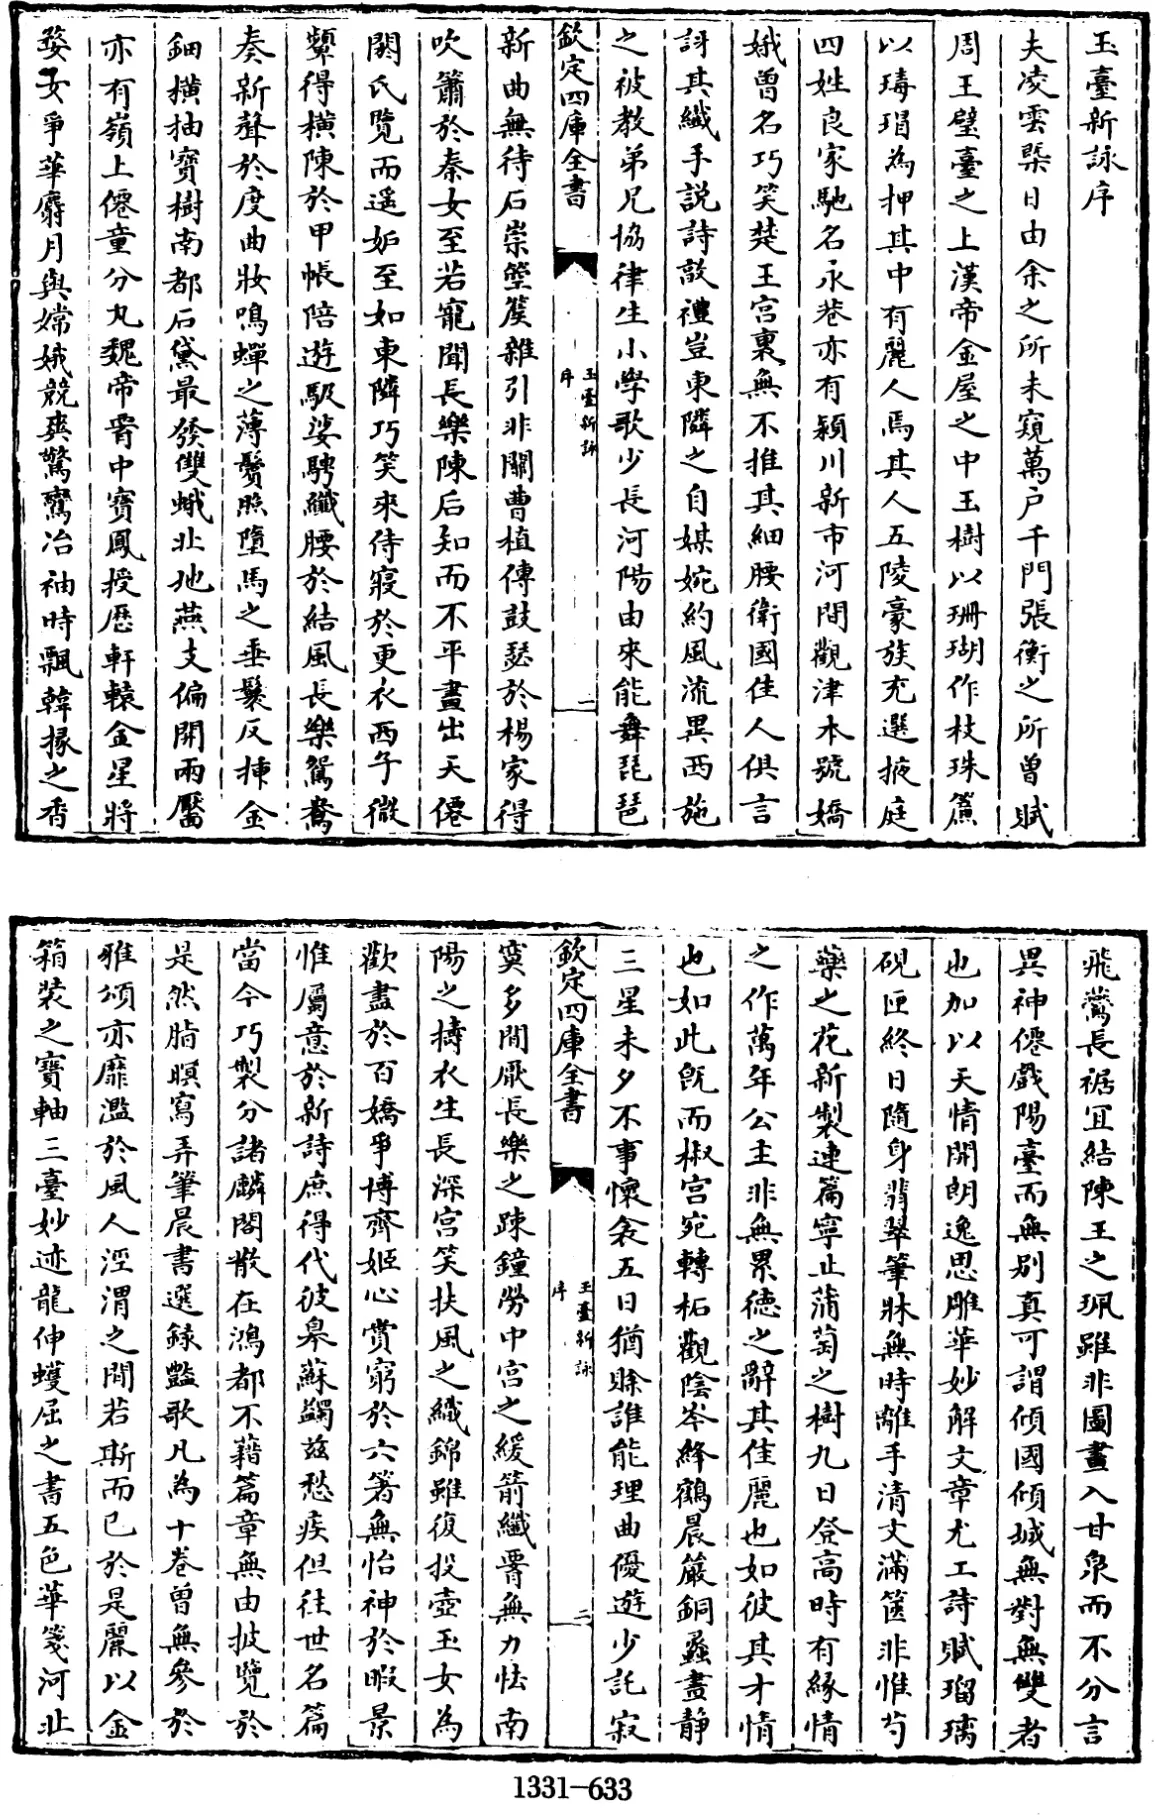 玉臺新詠序
夫凌雲槩日由余之所未窺萬户千門張衡之所曾賦
周王璧臺之上漢帝金屋之中玉樹以珊瑚作枝珠簾
以瑇瑁為押其中有麗人焉其人五陵豪族充選掖庭
四姓良家馳名永巷亦有潁川新市河間觀津本號嬌
娥曾名巧笑楚王宫裏無不推其細腰衛國佳人俱言
訝其纎手説詩敦禮豈東隣之自媒婉約風流異西施
之被教弟兄協律生小學歌少長河陽由來能舞琵琶
欽定四庫全書
玉臺新詠
序
一
新曲無待石崇箜篌雜引非關曹植傳鼓瑟於楊家得
吹簫於秦女至若寵聞長樂陳后知而不平畫出天僊
閼氏覽而遥妬至如東隣巧笑來侍寢於更衣西子微
顰得横陳於甲帳陪遊馺娑騁纎腰於結風長樂鴛鴦
奏新聲於度曲妝鳴蟬之薄鬢照墮馬之垂鬟反插金
鈿横抽寶樹南都石黛最發雙蛾北地燕支偏開兩靨
亦有嶺上僊童分丸魏帝腰中寶鳳授歷軒轅金星將
婺女爭華麝月與嫦娥競爽驚鸞冶袖時飄韓掾之香
飛鷰長裾宜結陳王之珮雖非圖畫入甘泉而不分言
異神僊戲陽臺而無别真可謂傾國傾城無對無雙者
也加以天情開朗逸思雕華妙解文章尤工詩賦瑠璃
硯匣終日隨身翡翠筆牀無時離手清文滿篋非惟芍
藥之花新製連篇寧止蒲萄之樹九日登高時有緣情
之作萬年公主非無累德之辭其佳麗也如彼其才情
也如此旣而椒宫宛轉柘觀陰岑絳鶴晨嚴銅蠡晝静
三星未夕不事懷衾五日猶賖誰能理曲優遊少託寂
欽定四庫全書
玉臺新詠
序
二
寞多閒厭長樂之踈鐘勞中宫之緩箭纎腰無力怯南
陽之擣衣生長深宫笑扶風之織錦雖復投壺玉女為
歡盡於百嬌爭博齊姬心賞窮於六箸無怡神於暇景
惟屬意於新詩庶得代彼皋蘇蠲兹愁疾但往世名篇
當今巧製分諸麟閣散在鴻都不藉篇章無由披覽於
是然脂瞑寫弄筆晨書選録豔歌凡為十巻曽無參於
雅頌亦靡濫於風人涇渭之間若斯而已於是麗以金
箱裝之寶軸三臺妙迹龍伸蠖屈之書五色華箋河北
1331-633